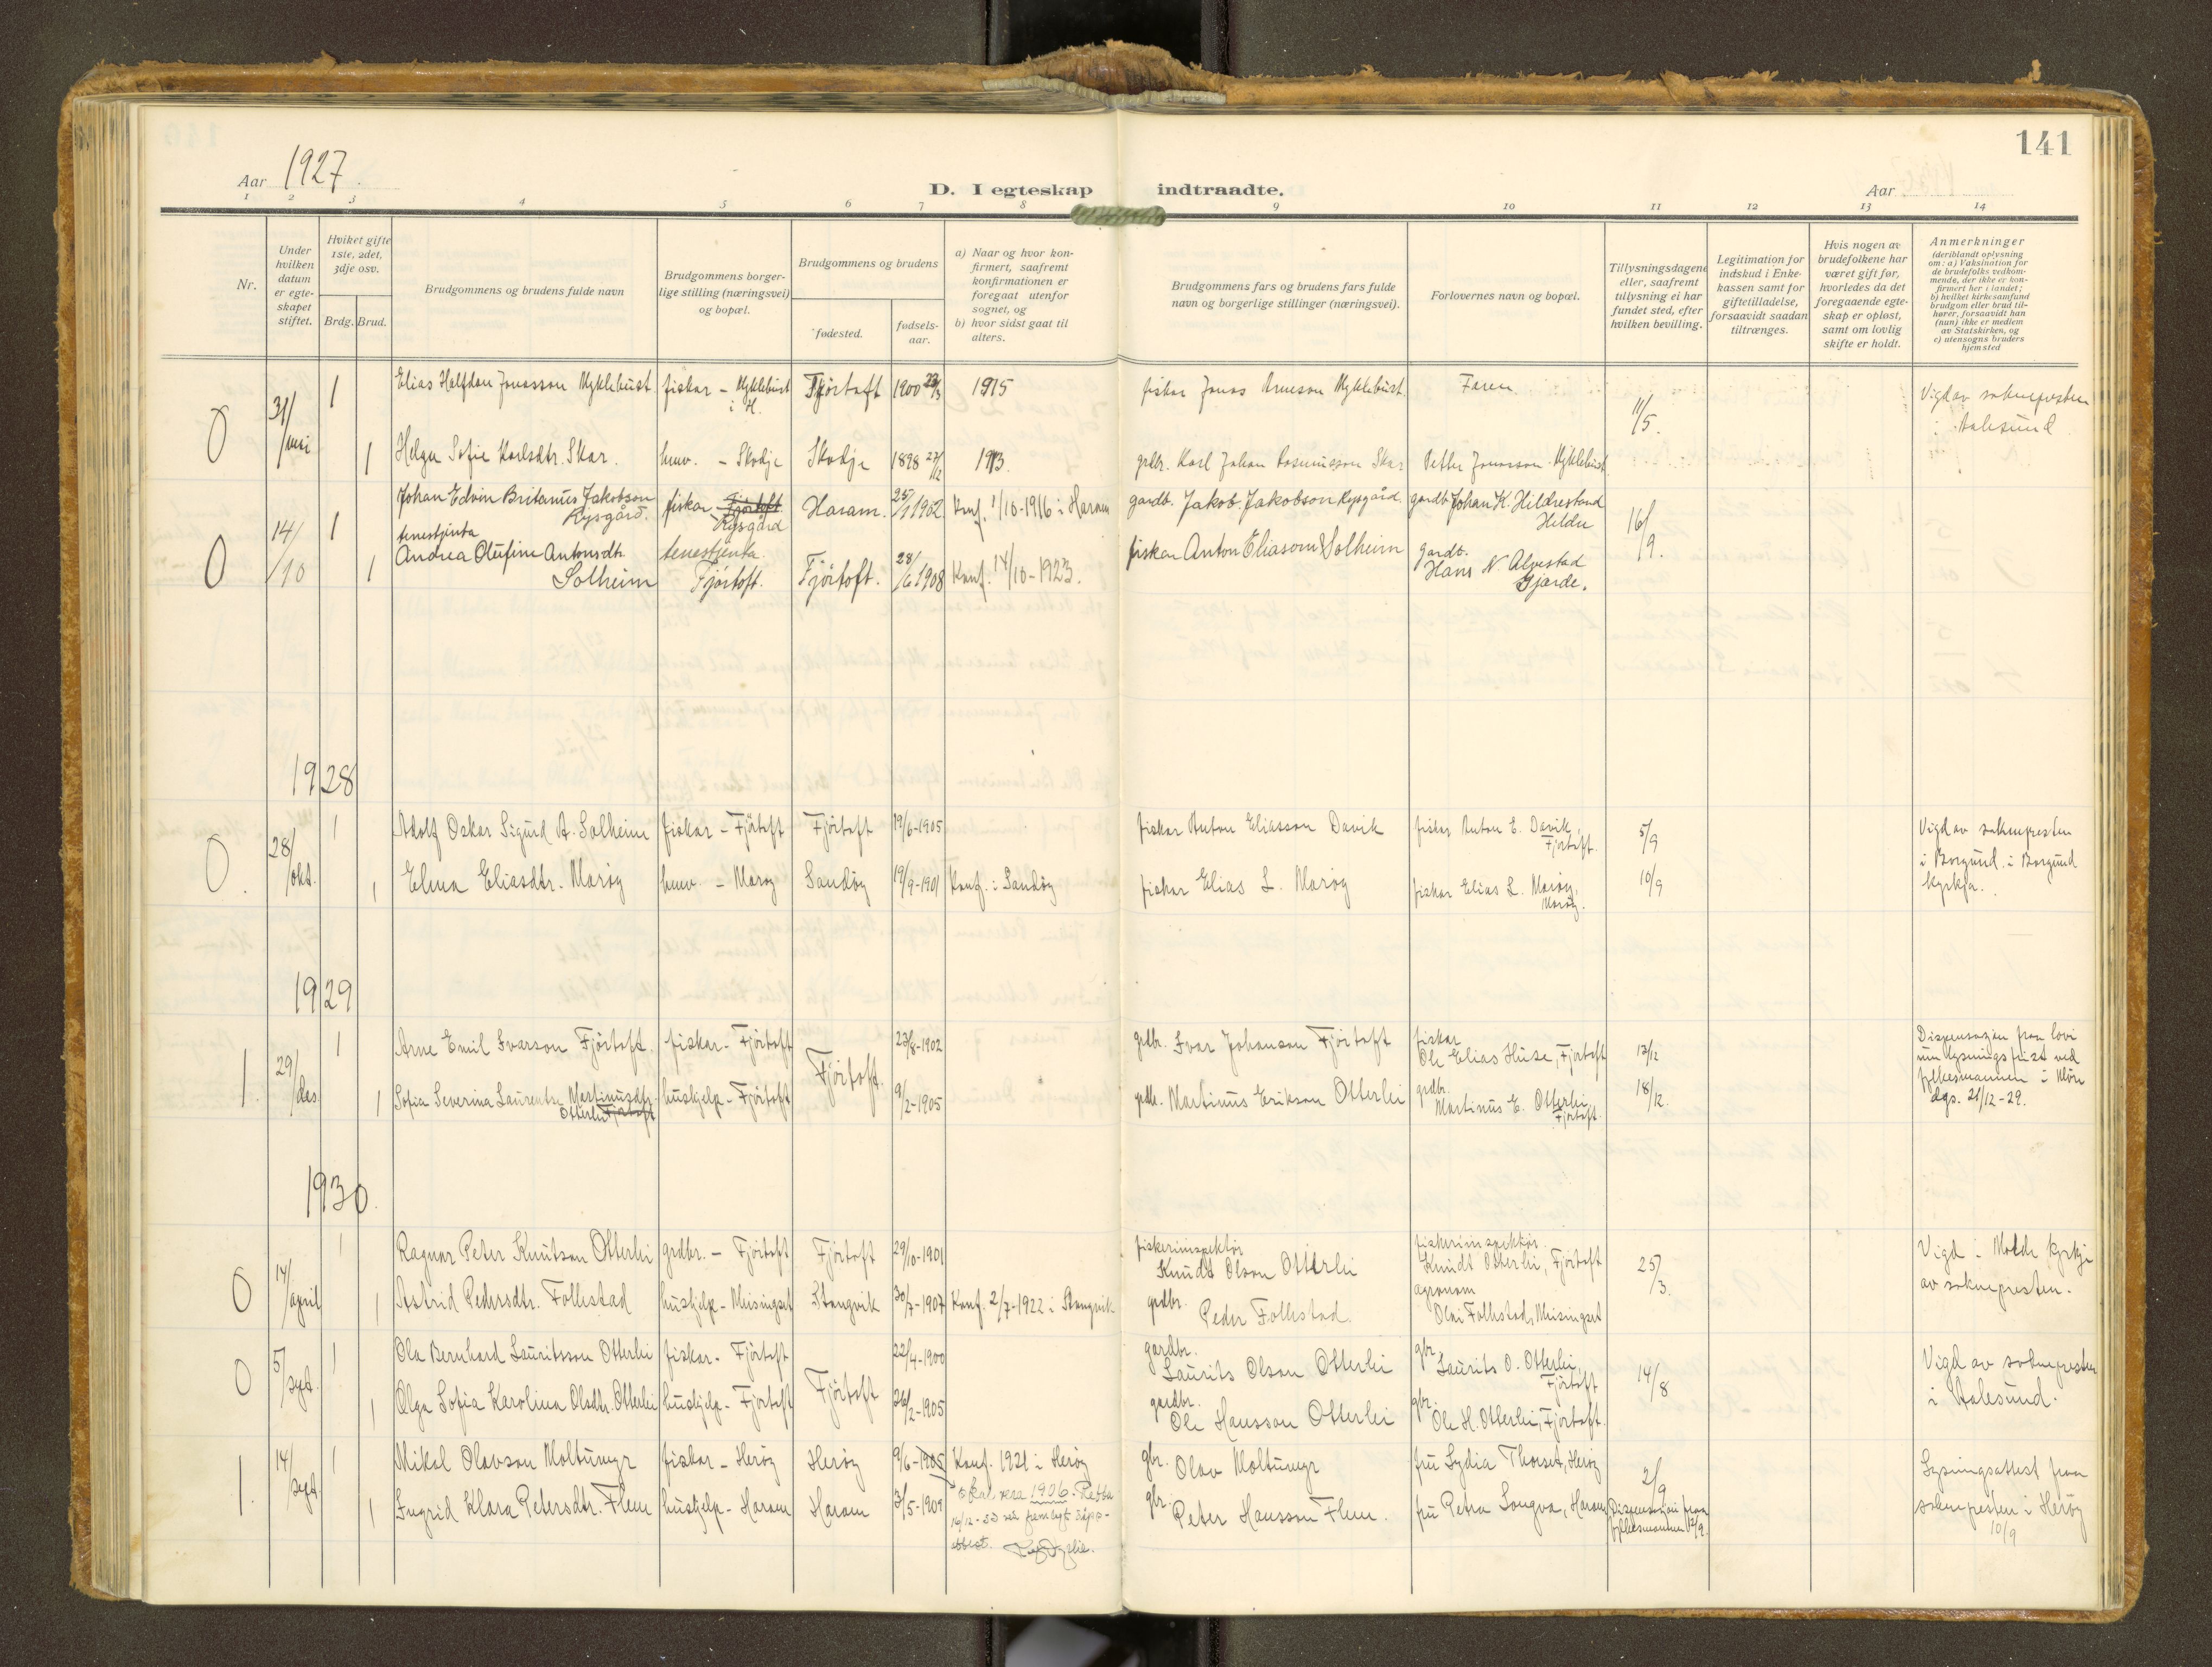 141
Aar 1927.
D. I egteskap indtraadte.
Aar
1 2 3 4 5 6 7 8 9 10 11 12 13 14
Nr.
Under hvilken datum er egte-skapet stiftet.
Hviket gifte 1ste, 2det, 3dje osv.
Brdg. Brud.
Brudgommens og brudens fulde navn
Brudgommens borger-lige stilling (næringsvei) og bopæl.
Brudgommens og brudens
fødested.
fødsels-aar.
a) Naar og hvor kon-firmert, saafremt konfirmationen er foregaat utenfor sognet, og
b) hvor sidst gaat til alters.
Brudgommens fars og brudens fars fulde navn og borgerlige stillinger (næringsvei).
Forlovernes navn og bopæl.
Tillysningsdagene eller, saafremt tillysning ei har fundet sted, efter hvilken bevilling.
Legitimation for indskud i Enke-kassen samt for giftetilladelse, forsaavidt saadan tiltrænges.
Hvis nogen av brudefolkene har været gift før, hvorledes da det foregaaende egte-skap er opløst, samt om lovlig skifte er holdt.
Anmerkninger (deriblandt oplysning om: a) Vaksination for de brudefolks vedkom-mende, der ikke er kon-firmert her i landet; b) hvilket kirkesamfund brudgom eller brud til-hører, forsaavidt han (hun) ikke er medlem av Statskirken, og c) utensogns bruders hjemsted
0 31/mai 1 Elias Halfdan Jonasson Myklebust fiskar - Myklebust i H. Fjörtoft 1900 1915 fiskar Jonas Arneson Myklebust Faren 11/5. Vigd av soknepresten i Aalesund
1 Helga Sofie Karlsdtr. Skar. huw. - Skodje Skodje 1898 27/12 1913. grdbr. Karl Johan Rasmusson Skar Petter Jonasson Myklebust
0 14/10 1 Johan Edvin Britanus Jakobson Rysgård. fiskar Fjörtoft Rysgård Haram. 25/1 1902. Konf. 1/10-1916 i Haram gardb. Jakob Jakobson Rysgård. gardb. Johan K. Hildrestrand Hildre 16/9.
1 tenestjenta Andrea Olufine Antonsdtr. Solheim tenestjenta Fjörtoft. Fjörtoft. 28/6 1908 Konf. 14/10-1923. fiskar Anton Eliasson Solheim gardb. Hans N. Alvestad Gjærde.
1928
0. 28/okt. 1 Adolf Oskar Sigurd A. Solheim fiskar - Fjörtoft Fjörtoft 19/6-1905 fiskar Anton Eliasson Davik fiskar Anton E. Davik, Fjörtoft. 5/9 Vigd av soknepresten i Borgund i Borgund kyrkja.
1 Elma Eliasdtr. Maröy huw. - Maröy Sandöy 19/9-1901 Konf. i Sandöy fiskar Elias L. Maröy fiskar Elias L. Maröy, Maröy. 10/9
1929
1. 29/des. 1 Arne Emil Ivarson Fjörtoft. fiskar - Fjörtoft Fjörtoft. 23/8-1902 grdbr. Ivar Johanson Fjörtoft fiskar Ole Elias Huse, Fjörtoft 12/12 Dispensasjon fraa lovi um lysningsfrist ved fylkesmannen i Möre dgs. 21/12-29.
1 Sofia Severina Laurentse Martinusdtr. Otterlei Fjörtoft hushjelp - Fjörtoft 9/2-1905 grdb. Martinus Erikson Otterlei grdbr. Martinus E. Otterlei, Fjörtoft. 18/12.
1930.
0 14/april 1 Ragnar Peter Knutson Otterlei grdbr. - Fjörtoft Fjörtoft 29/10-1901 fiskeriinspektör Knudt Olson Otterlei fiskeriinspektör Knudt Otterlei, Fjörtoft 25/3. Vigd i Molde kyrkje av soknepresten.
1 Astrid Pedersdtr. Follestad hushjelp - Meisingset Stangvik 30/7-1907 Konf. 2/7-1922 i Stangvik grdbr. Peder Follestad. agronom Olai Follestad, Meisingset
0 5/sept. 1 Ola Bernhard Lauritsson Otterlei fiskar - Fjörtoft Fjörtoft 22/4-1900 gardbr. Laurits Olson Otterlei gbr. Laurits O. Otterlei, Fjörtoft 14/8 Vigd av soknepresten i Aalesund.
1 Olga Sofia Karolina Olsdtr. Otterlei hushjelp - Fjörtoft 26/2-1905 gardbr. Ole Hansson Otterlei gbr. Ole H. Otterlei, Fjörtoft.
1. 14/sept. 1 Mikal Olavson Moltumyr fiskar - Heröy Heröy 9/6-1905 Konf. 1921 i Heröy gbr. Olav Moltumyr fru Lydia Thorset, Heröy 2/9 Lysningsattest fraa soknepresten i Heröy 10/9
1 Ingrid Klara Petersdtr. Flem hushjelp - Haram Haram 3/5-1909 skal vera 1906. gbr. Peter Hansson Flem. fru Petra Longva, Haram Dispensasjon fraa fylkesmannen 12/9.